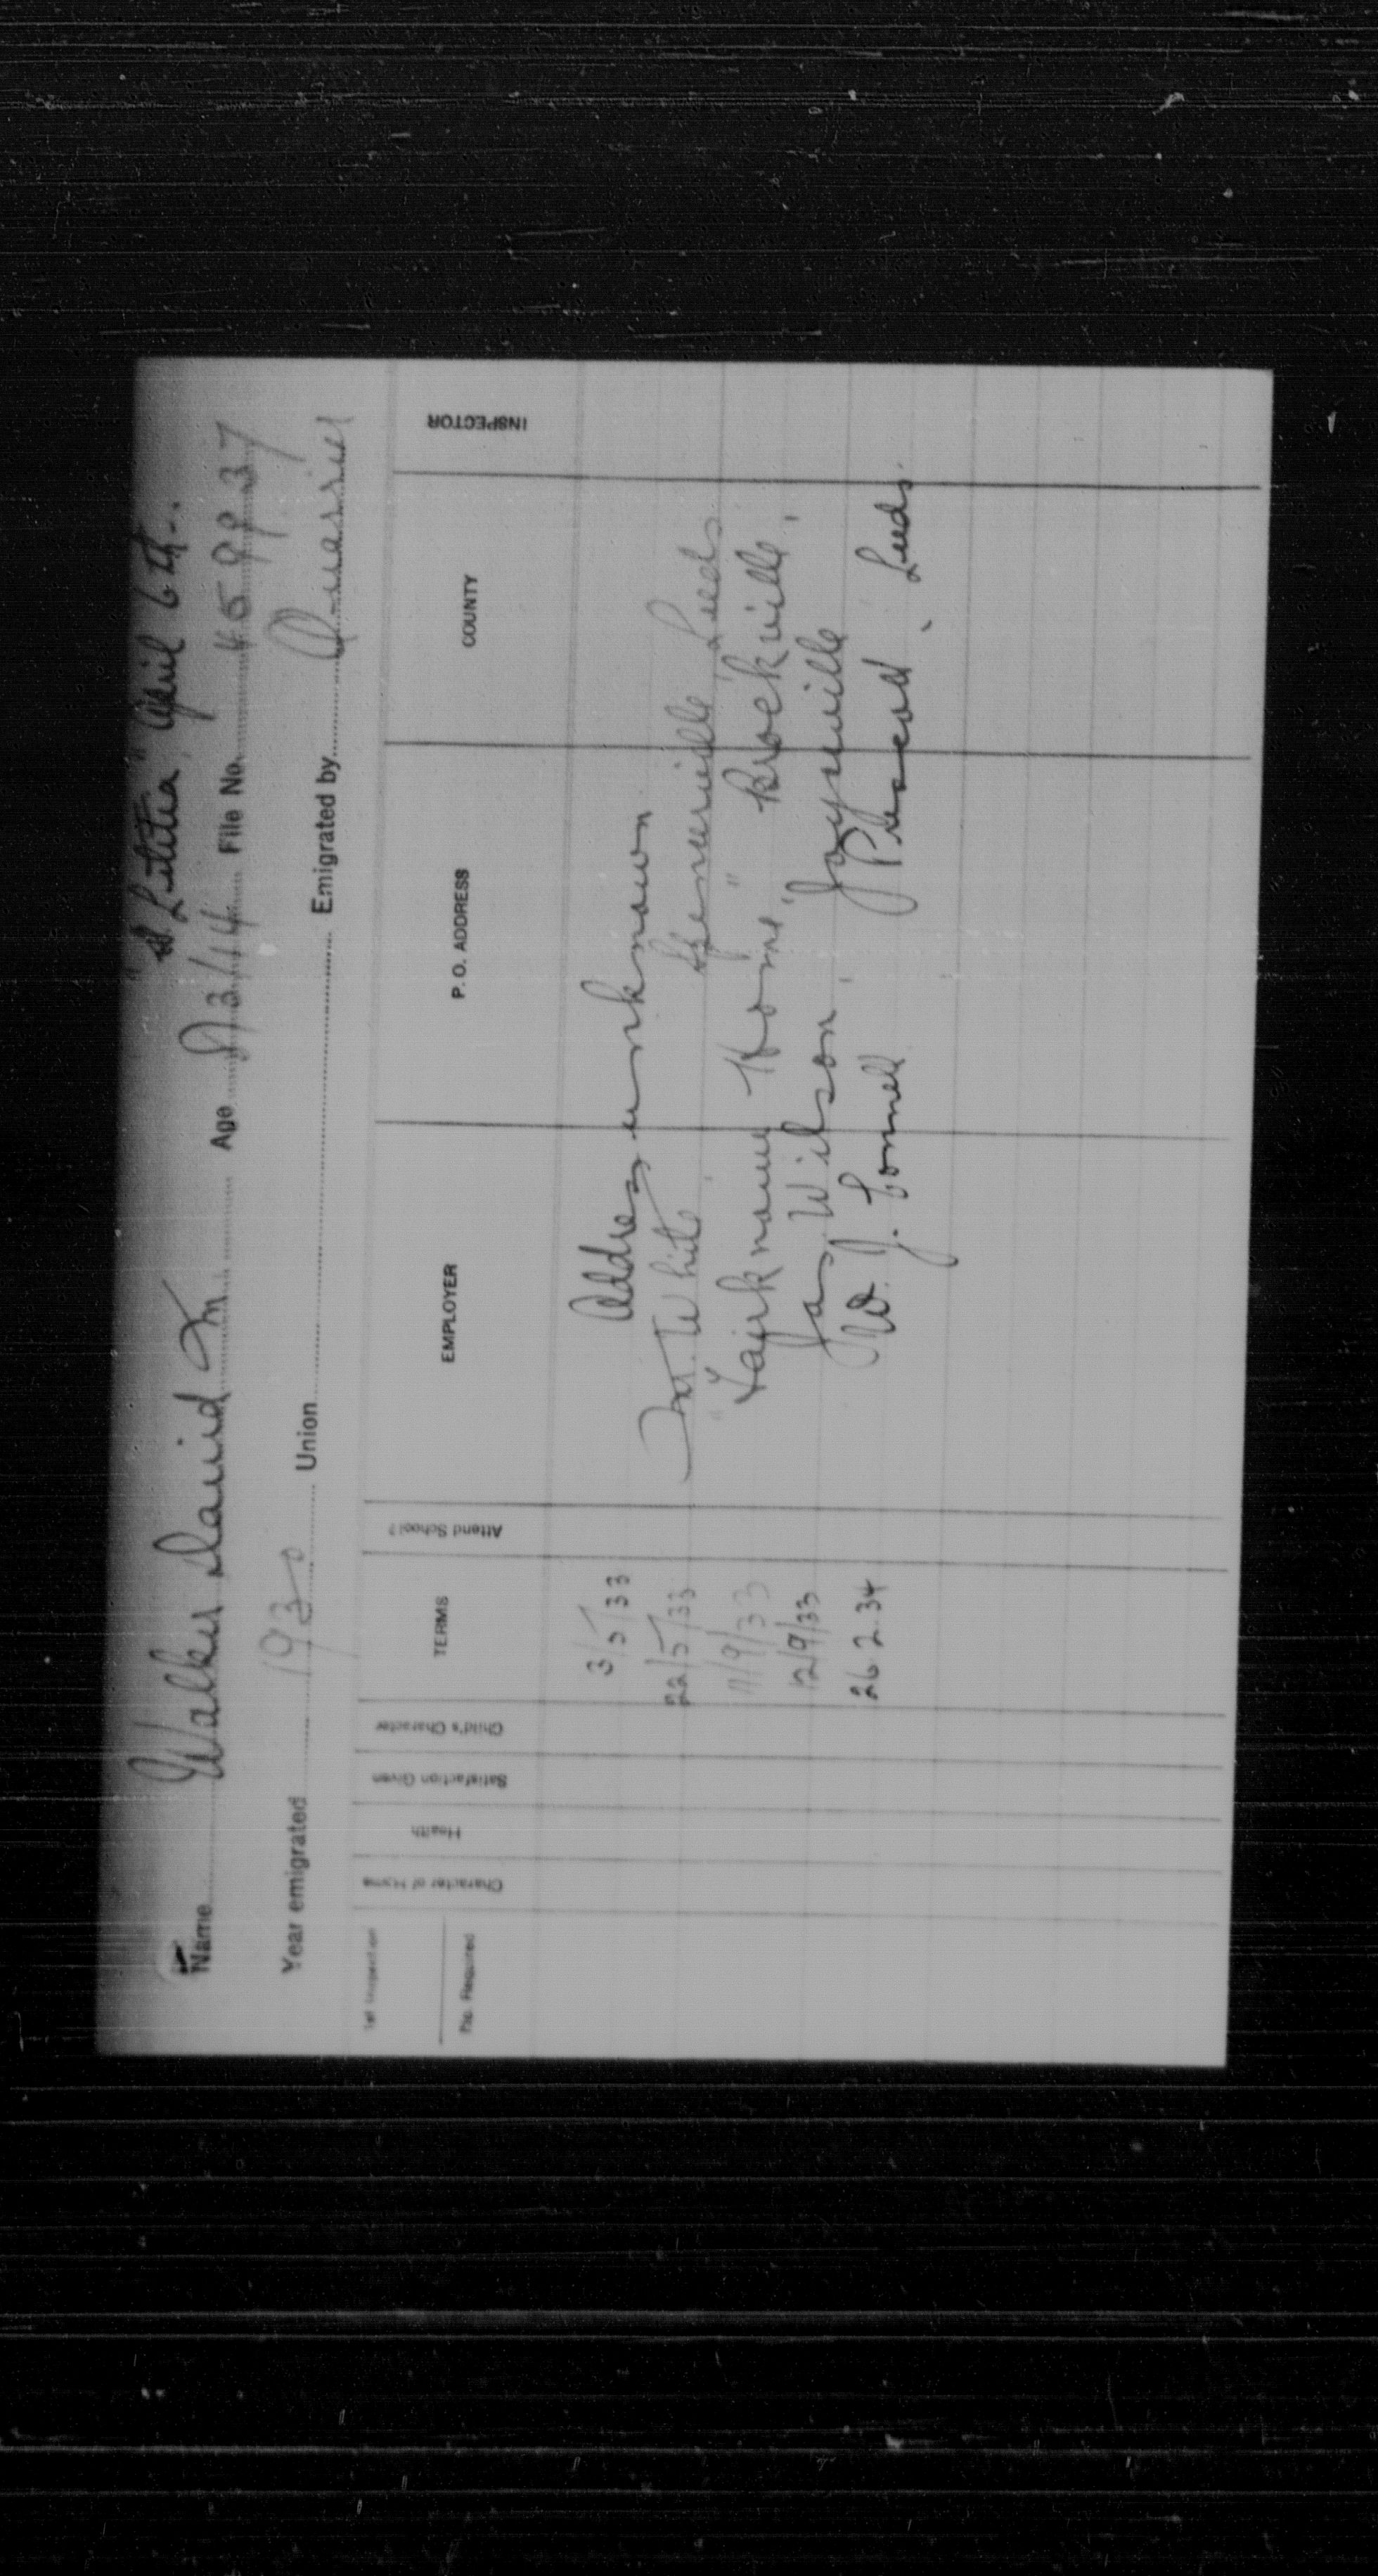 "S. Letitia" April 6th.
Name Walker David M Age 13/14 File No. 459937
Year emigrated 1930 Union Emigrated by Quarrier
1st Inspection
Rep. Required
Character of Home Health Satisfaction Given Child's Character TERMS Attend School? EMPLOYER P. O. ADDRESS COUNTY INSPECTOR
3/5/33 Address unknown
22/5/33 White Spencerville, Leeds
11/9/33 "Fairknowe Home," Brockville,
12/9/33 Jas. Wilson, Jasper
26.2.34 W. J. Connell Leeds.